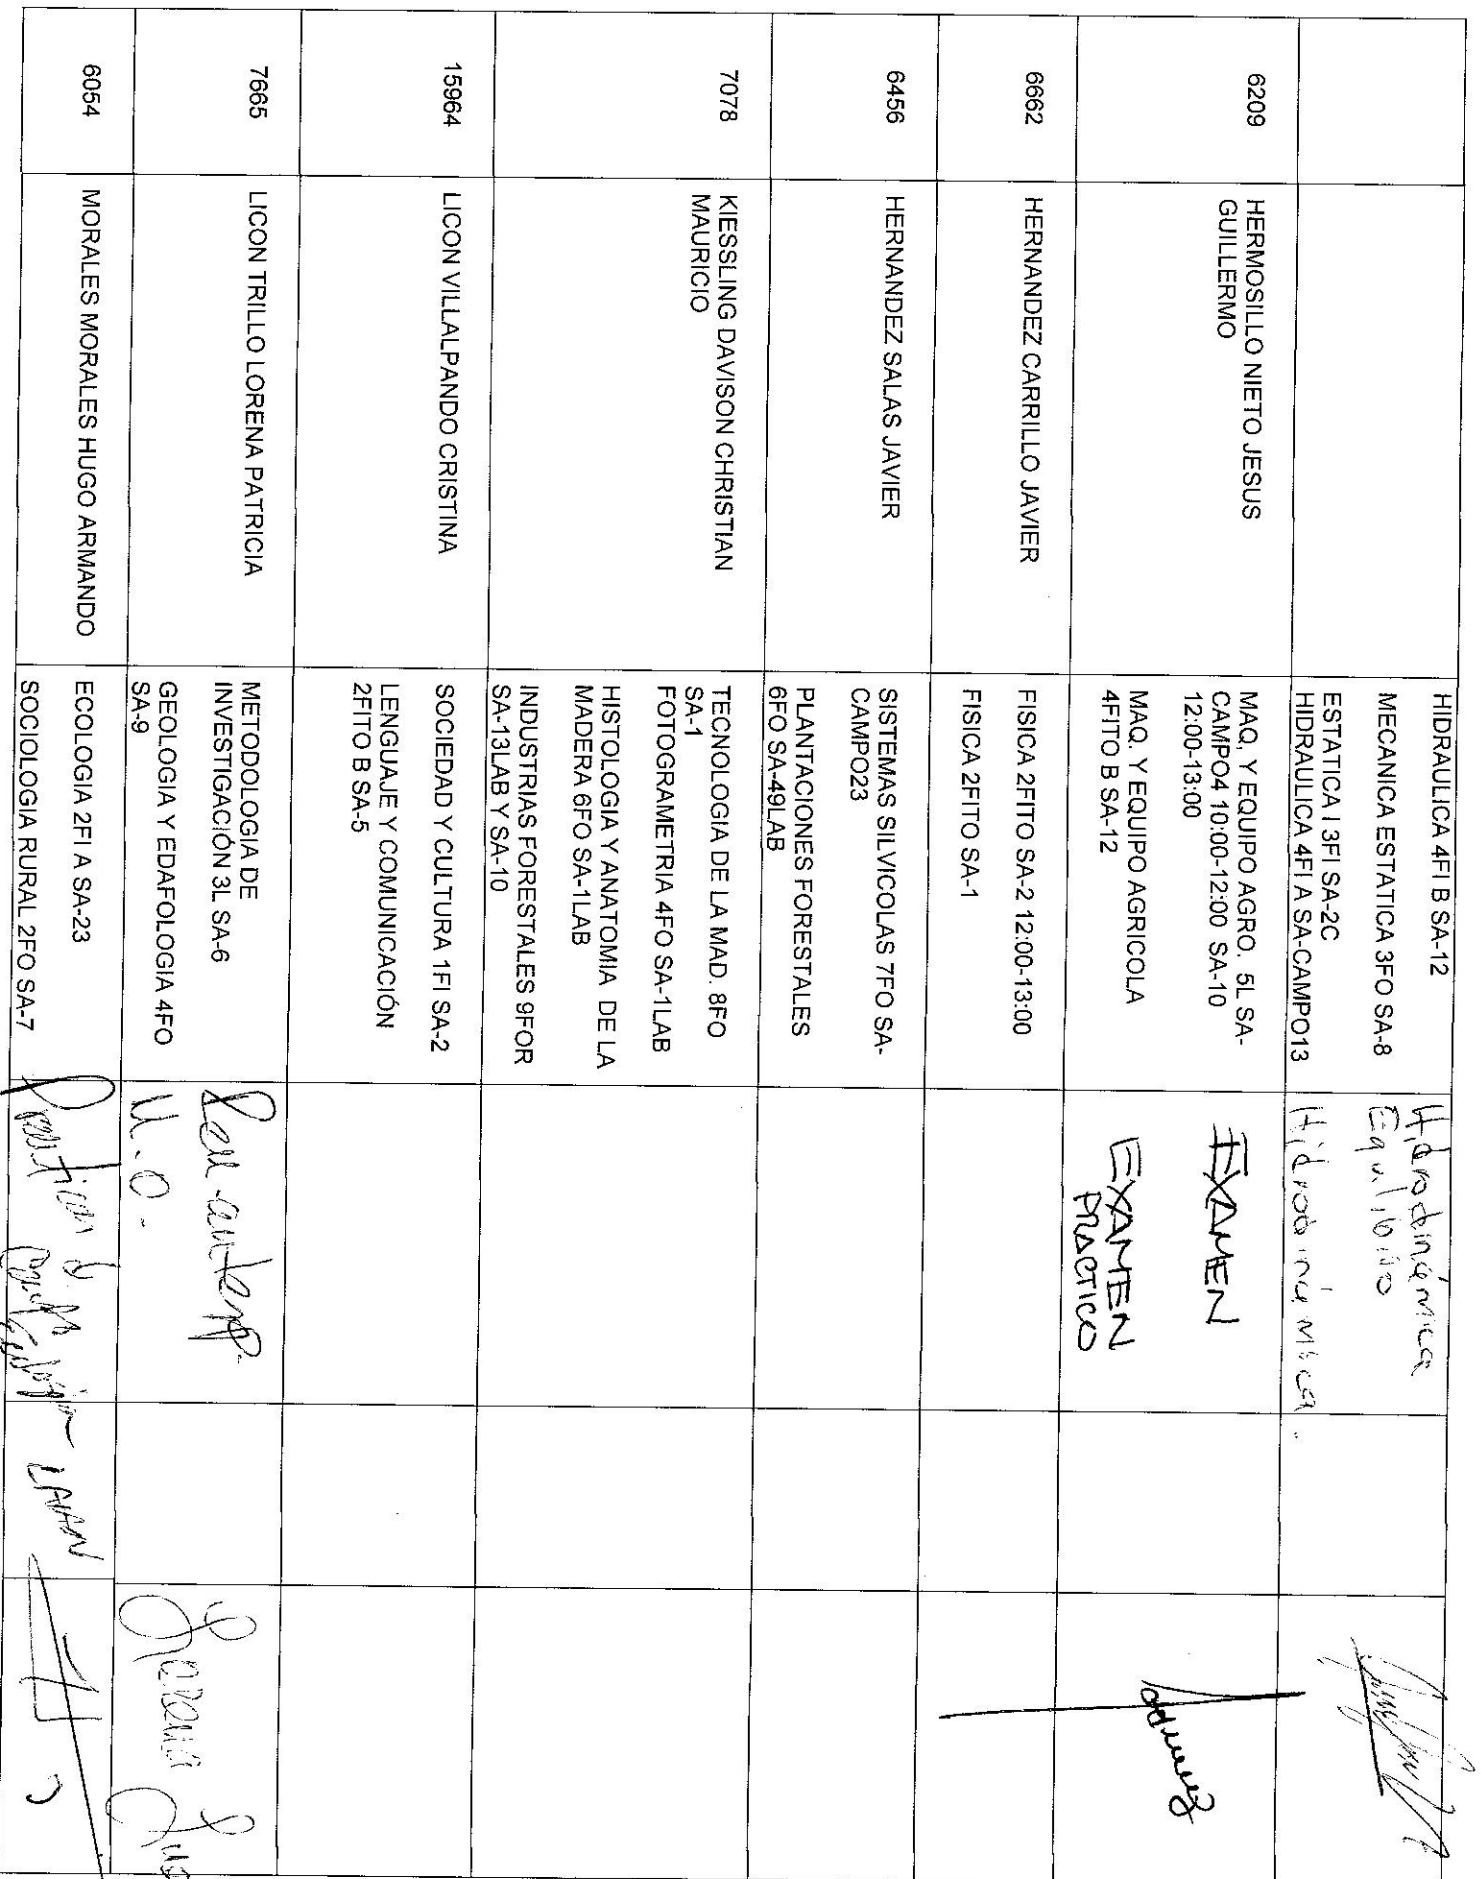 HIDRAULICA 4FI B SA-12
Hidrodinámica
MECANICA ESTATICA 3FO SA-8
Equilibrio
ESTATICA I 3FI SA-2C
HIDRAULICA 4FI A SA-CAMPO13
Hidrodinámica.
6209
HERMOSILLO NIETO JESUS
GUILLERMO
MAQ, Y EQUIPO AGRO. 5L SA-
CAMPO4 10:00-12:00 SA-10
12:00-13:00
EXAMEN
MAQ. Y EQUIPO AGRICOLA
4FITO B SA-12
EXAMEN
PRACTICO
6662
HERNANDEZ CARRILLO JAVIER
FISICA 2FITO SA-2 12:00-13:00
FISICA 2FITO SA-1
6456
HERNANDEZ SALAS JAVIER
SISTEMAS SILVICOLAS 7FO SA-
CAMPO23
PLANTACIONES FORESTALES
6FO SA-49LAB
7078
KIESSLING DAVISON CHRISTIAN
MAURICIO
TECNOLOGIA DE LA MAD. 8FO
SA-1
FOTOGRAMETRIA 4FO SA-1LAB
HISTOLOGIA Y ANATOMIA DE LA
MADERA 6FO SA-1LAB
INDUSTRIAS FORESTALES 9FOR
SA-13LAB Y SA-10
15964
LICON VILLALPANDO CRISTINA
SOCIEDAD Y CULTURA 1FI SA-2
LENGUAJE Y COMUNICACIÓN
2FITO B SA-5
7665
LICON TRILLO LORENA PATRICIA
METODOLOGIA DE
INVESTIGACIÓN 3L SA-6
GEOLOGIA Y EDAFOLOGIA 4FO
SA-9
M.O.
Lorena
6054
MORALES MORALES HUGO ARMANDO
ECOLOGIA 2FI A SA-23
SOCIOLOGIA RURAL 2FO SA-7